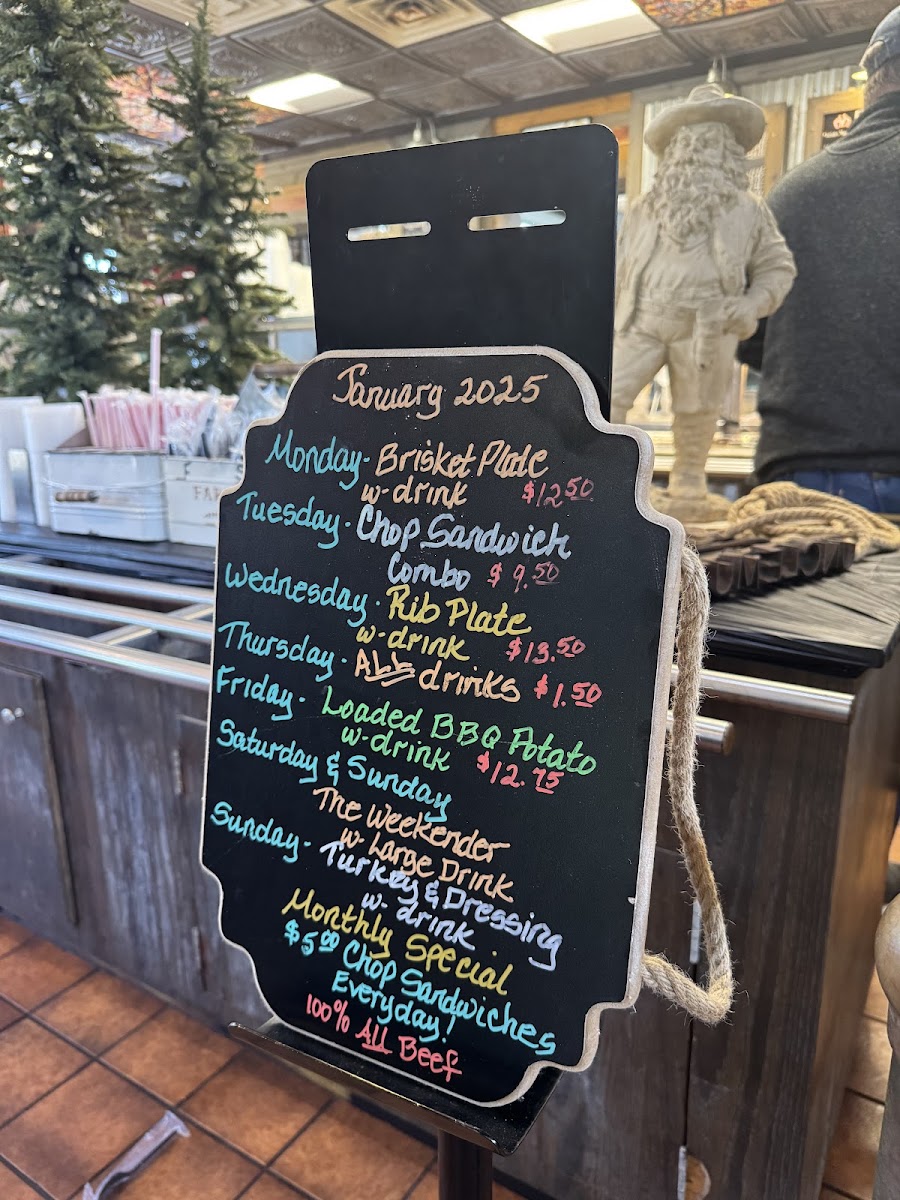 January 2025
Monday- Brisket Plate
w- drink $12.50
Tuesday- Chop Sandwich
Combo $9.50
Wednesday- Rib Plate
w- drink $13.50
Thursday- ALL drinks $1.50
Friday- Loaded BBQ Potato
w- drink $12.75
Saturday & Sunday
The Weekender
w- Large Drink
Sunday- Turkey & Dressing
w- drink
Monthly Special
$5.00 Chop Sandwiches
Everyday!
100% All Beef